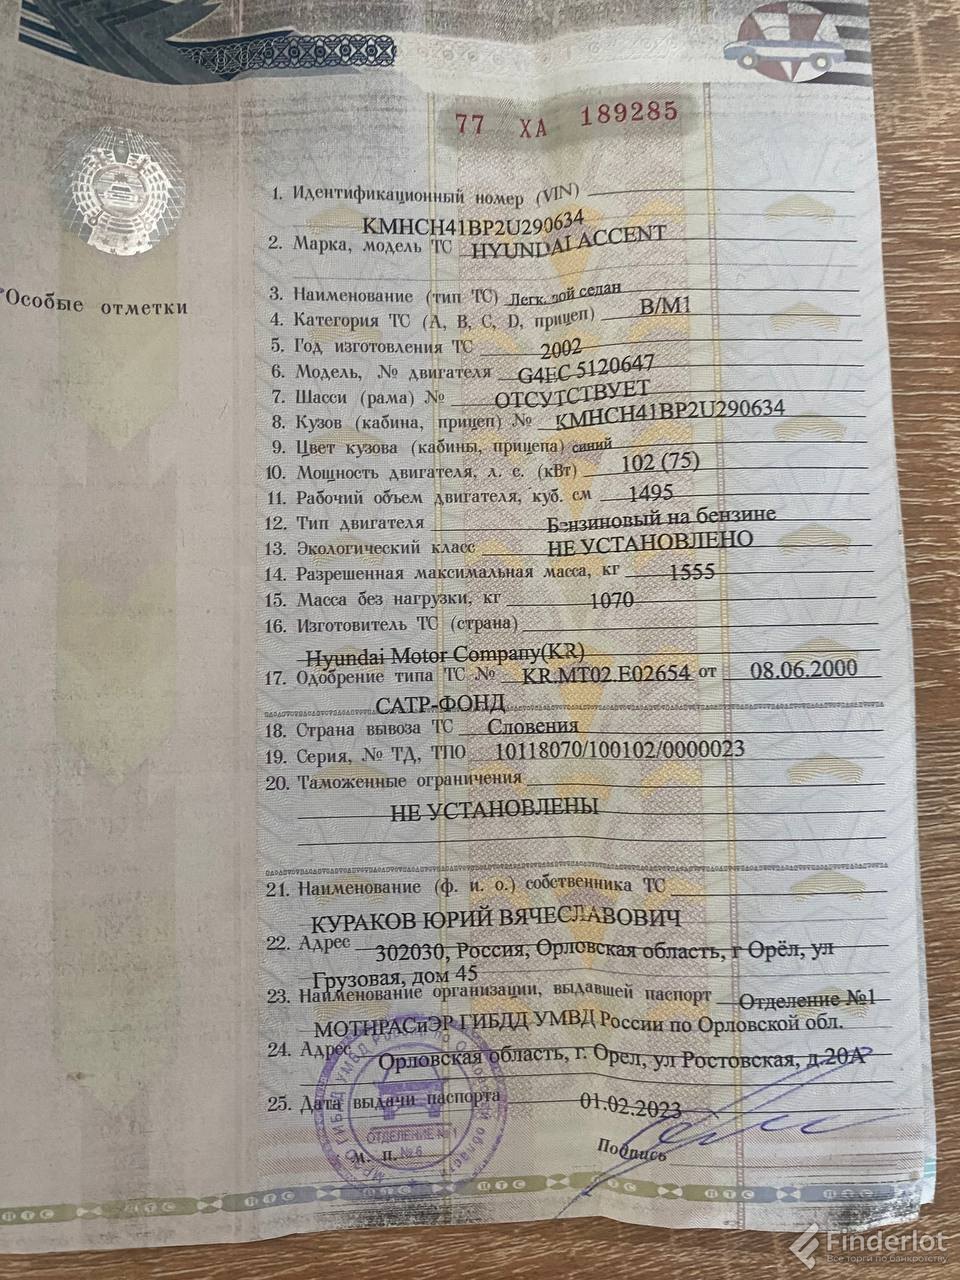 77 ХА 189285
Особые отметки
1. Идентификационный номер (VIN)
KMHCH41BP2U290634
2. Марка, модель ТС HYUNDAI ACCENT
3. Наименование (тип ТС) Легковой седан
4. Категория ТС (А, В, С, D, прицеп) B/M1
5. Год изготовления ТС 2002
6. Модель, № двигателя G4EC 5120647
7. Шасси (рама) № ОТСУТСТВУЕТ
8. Кузов (кабина, прицеп) № KMHCH41BP2U290634
9. Цвет кузова (кабины, прицепа) синий
10. Мощность двигателя, л. с. (кВт) 102 (75)
11. Рабочий объем двигателя, куб. см 1495
12. Тип двигателя Бензиновый на бензине
13. Экологический класс НЕ УСТАНОВЛЕНО
14. Разрешенная максимальная масса, кг 1555
15. Масса без нагрузки, кг 1070
16. Изготовитель ТС (страна)
Hyundai Motor Company(KR)
17. Одобрение типа ТС № KR.MT02.E02654 от 08.06.2000
САТР-ФОНД
18. Страна вывоза ТС Словения
19. Серия, № ТД, ТПО 10118070/100102/0000023
20. Таможенные ограничения
НЕ УСТАНОВЛЕНЫ
21. Наименование (ф. и. о.) собственника ТС
КУРАКОВ ЮРИЙ ВЯЧЕСЛАВОВИЧ
22. Адрес 302030, Россия, Орловская область, г Орёл, ул
Грузовая, дом 45
23. Наименование организации, выдавшей паспорт Отделение №1
МОТНРАСиЭР ГИБДД УМВД России по Орловской обл.
24. Адрес Орловская область, г. Орел, ул Ростовская, д.20А
25. Дата выдачи паспорта 01.02.2023
ОТДЕЛЕНИЕ № 1
м. п. №6
Подпись
ПТС ПТС ПТС ПТС ПТС ПТС
Finderlot
Все торги по банкротству